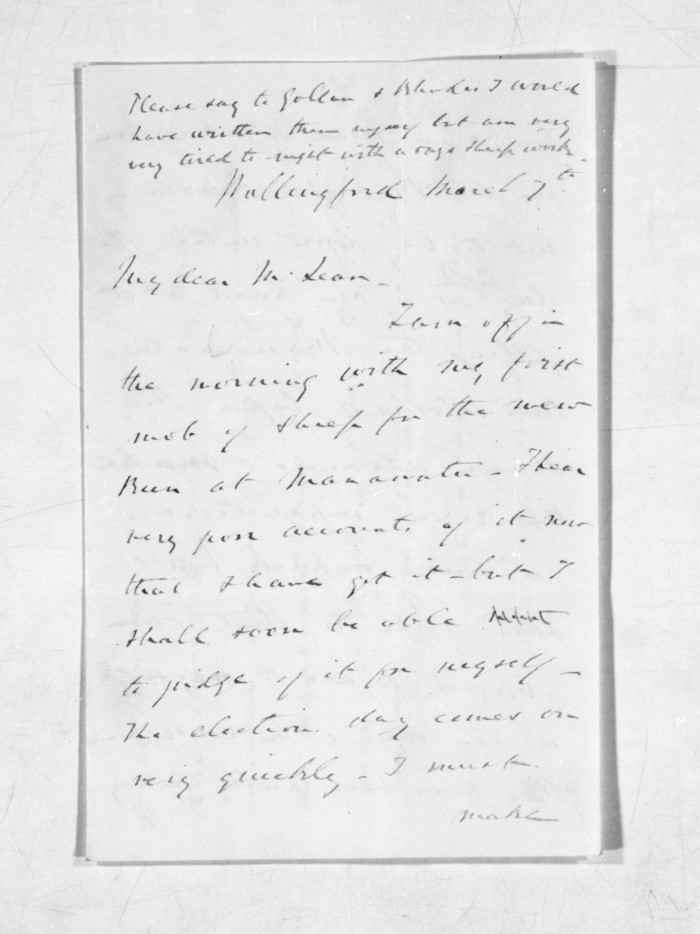 Please say to Gollan & Rhodes I would
have written them myself but am very
very tired to-night with a days sheep work.
Wallingford March 7th
My dear McLean -
I am off in
the morning with my first
mob of sheep for the new
Run at Manawatu - I hear
very poor accounts of it now
that I have got it - but I
shall soon be able
to judge of it for myself -
The election day comes on
very quickly - I must
make